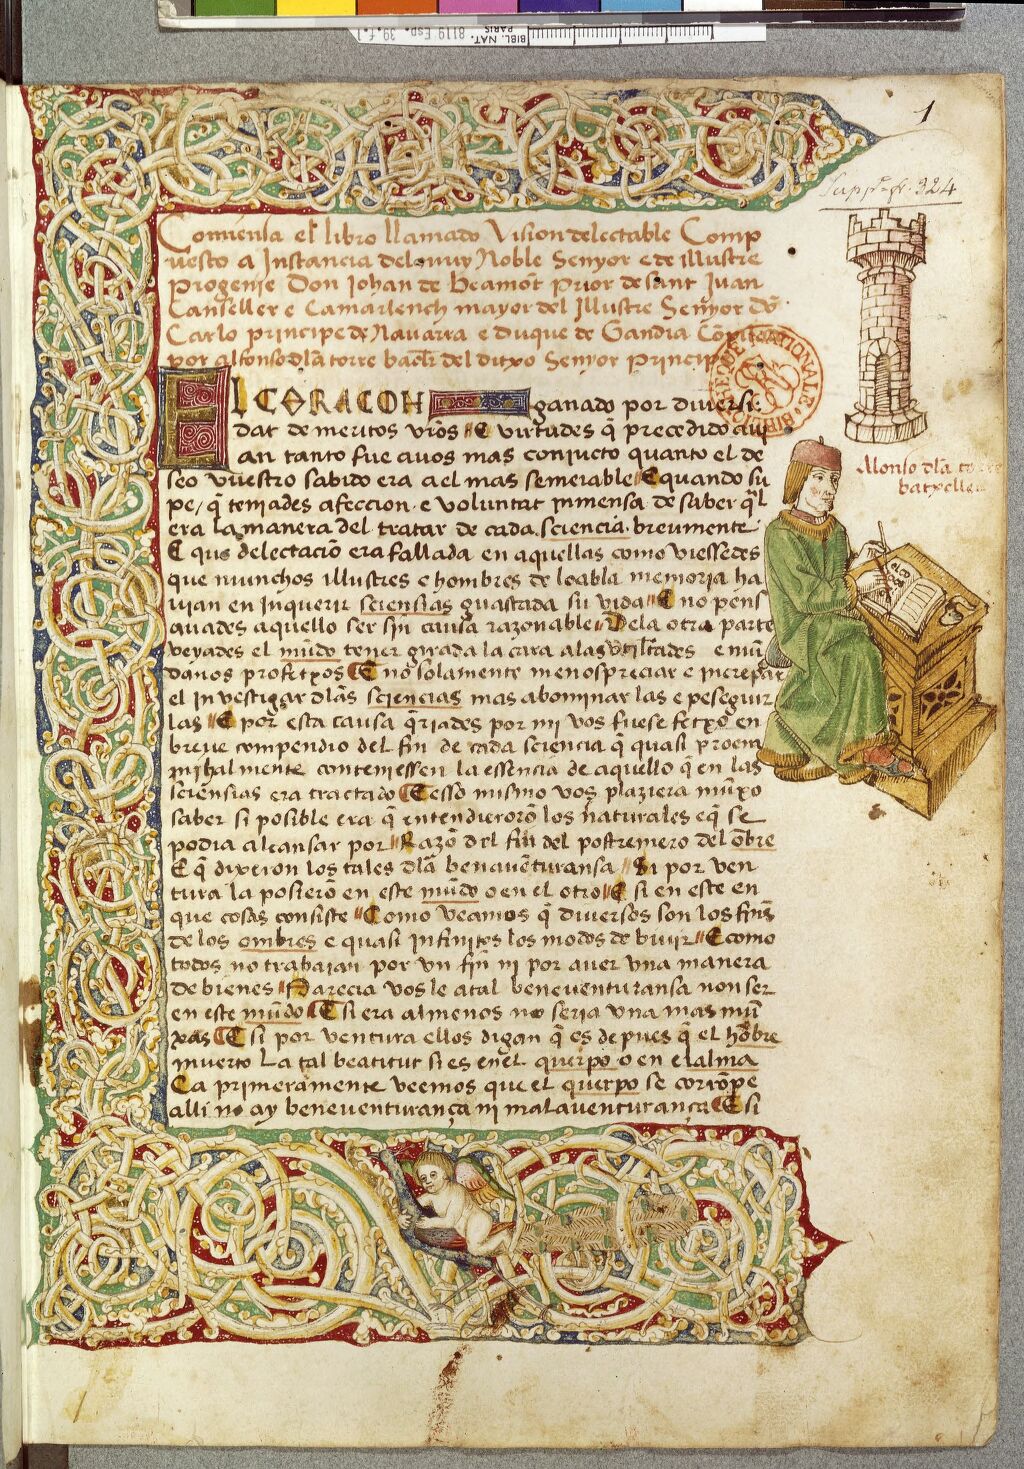 BIBL. NAT. 8119 Esp. 39. f. 1
PARIS
1
Supp.t fr. 324
Comiensa el libro llamado Vision delectable Comp
uesto a Instancia del muy Noble Senyor e de illustre
progenie Don Johan de Beamōt Prior de sant Juan
Canseller e Camarlench mayor del Illustre Senyor dō
Carlo principe de Navarra e duque de Gandia
por alfonso dla torre bachr del ditxo Senyor Principe
EL CORACON ganado por diversi
dat de meritos vros E virtudes q̄ precedido avi
an tanto fue avos mas conjucto quanto el de
seo vuestro sabido era a el mas semerable E quando su
pe, q̄ teniades afeccion e voluntat inmensa de saber q̄l
era la manera del tratar de cada sciencia brevmente
E que delectaciō era fallada en aquellas como viessedes
que munchos illustres e hombres de loabla memoria ha
vian en Inquerir sciensias guastada su vida E no pens
avades aquello ser sin causa razonable Dela otra parte
veyades el mūdo tener girada la cara alas vtilitades e mū
danos profetxos E no solamente menospreciar e increpar
el Investigar dlās sciencias mas abominar las e peseguir
las E por esta causa q̄riades por mi vos fuese fetxo en
breve compendio del fin de cada sciencia q̄ quasi proem
mihalmente conteniessen la essencia de aquello q̄ en las
sciensias era tractado E esso mismo vos plaziera mūxo
saber si posible era q̄ entendierorō los naturales e q̄ se
podia alcansar por Razō del fin del postremero del ōbre
E q̄ dixeron los tales dlā benavēturansa Si por ven
tura la posierō en este mūdo o en el otro E si en este en
que cosas consiste Como veamos q̄ diversos son los fins
de los ombres e quasi infinitos los modos de bivir E como
todos no trabajan por vn fin ni por aver vna manera
de bienes Parecia vos le atal beneventuransa non ser
en este mūdo E si era almenos no seria vna mas mū
xas E si por ventura ellos digan q̄ es de pues q̄ el hōbre
muerto La tal beatitut si es en el querpo o en el alma
Ca primeramente veemos que el querpo se corrōpe
alli no ay beneventurança ni malaventurança E si
Alonso dla torre
batxeller